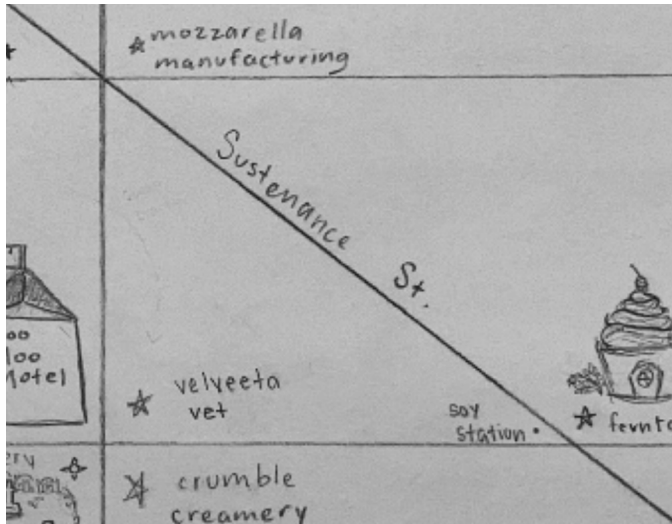 mozzarella
manufacturing
Sustenance St.
oo
loo
Motel
velveeta
vet
soy
station
crumble
creamery